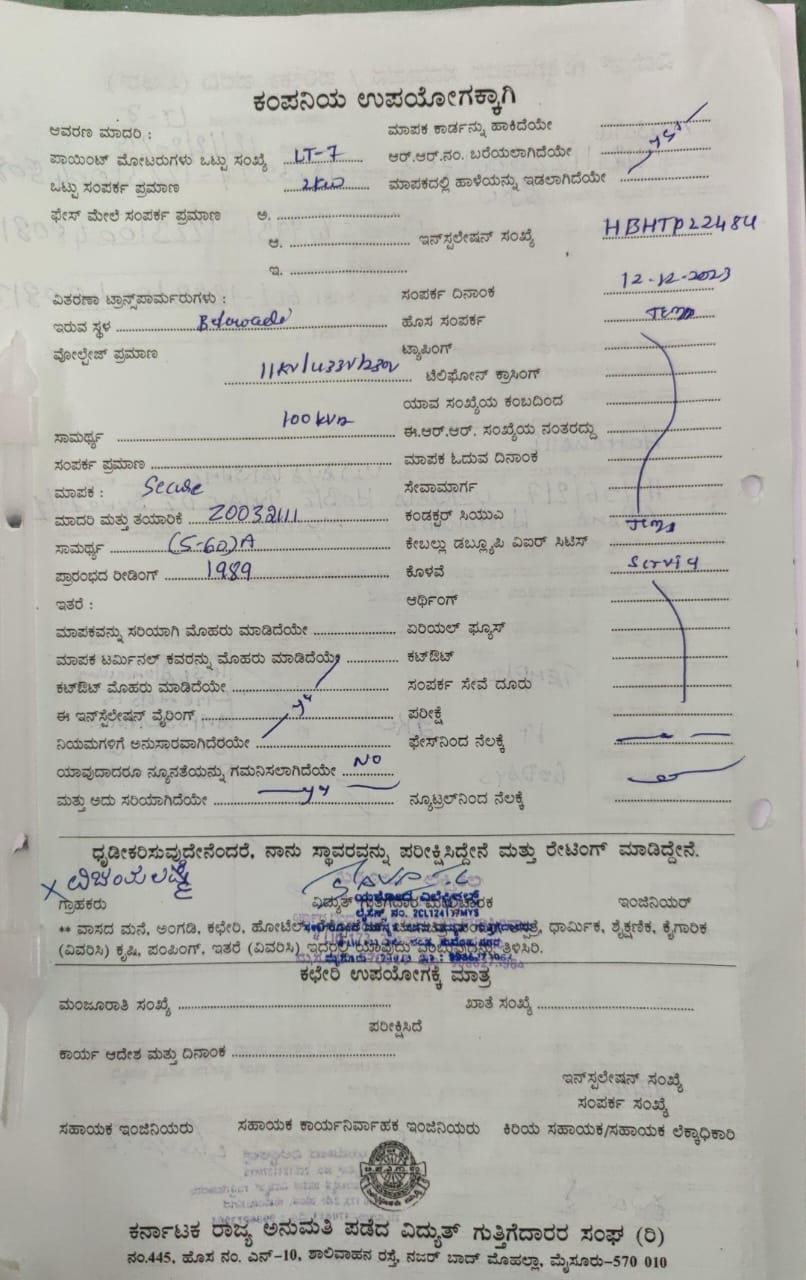 ಕಂಪನಿಯ ಉಪಯೋಗಕ್ಕಾಗಿ
ಆವರಣ ಮಾದರಿ : ಮಾಪಕ ಕಾರ್ಡನ್ನು ಹಾಕಿದೆಯೇ
ಪಾಯಿಂಟ್ ಮೋಟರುಗಳು ಒಟ್ಟು ಸಂಖ್ಯೆ LT-7 ಆರ್.ಆರ್.ನಂ. ಬರೆಯಲಾಗಿದೆಯೇ yes
ಒಟ್ಟು ಸಂಪರ್ಕ ಪ್ರಮಾಣ 2KW ಮಾಪಕದಲ್ಲಿ ಹಾಳೆಯನ್ನು ಇಡಲಾಗಿದೆಯೇ
ಫೇಸ್ ಮೇಲೆ ಸಂಪರ್ಕ ಪ್ರಮಾಣ ಅ.
ಆ. ಇನ್‌ಸ್ಪಲೇಷನ್ ಸಂಖ್ಯೆ HBHTP22484
ಇ.
ವಿತರಣಾ ಟ್ರಾನ್ಸ್‌ಪಾರ್ಮರುಗಳು : ಸಂಪರ್ಕ ದಿನಾಂಕ 12-12-2023
ಇರುವ ಸ್ಥಳ ಹೊಸ ಸಂಪರ್ಕ Temp
ವೋಲ್ಟೇಜ್ ಪ್ರಮಾಣ ಟ್ಯಾಪಿಂಗ್
11KV/433V/230V ಟೆಲಿಫೋನ್ ಕ್ರಾಸಿಂಗ್
100KVA ಯಾವ ಸಂಖ್ಯೆಯ ಕಂಬದಿಂದ
ಸಾಮರ್ಥ್ಯ ಈ.ಆರ್.ಆರ್. ಸಂಖ್ಯೆಯ ನಂತರದ್ದು
ಸಂಪರ್ಕ ಪ್ರಮಾಣ ಮಾಪಕ ಓದುವ ದಿನಾಂಕ
ಮಾಪಕ : Secure ಸೇವಾಮಾರ್ಗ
ಮಾದರಿ ಮತ್ತು ತಯಾರಿಕೆ Z0032111 ಕಂಡಕ್ಟರ್ ಸಿಯುವಿ Temp
ಸಾಮರ್ಥ್ಯ (5-60)A ಕೇಬಲ್ಲು ಡಬ್ಲ್ಯೂಪಿ ವಿಐರ್ ಸಿಟಿಸ್
ಪ್ರಾರಂಭದ ರೀಡಿಂಗ್ 1989 ಕೊಳವೆ
ಇತರೆ : ಆರ್ಥಿಂಗ್
ಮಾಪಕವನ್ನು ಸರಿಯಾಗಿ ಮೊಹರು ಮಾಡಿದೆಯೇ ಏರಿಯಲ್ ಫ್ಯೂಸ್
ಮಾಪಕ ಟರ್ಮಿನಲ್ ಕವರನ್ನು ಮೊಹರು ಮಾಡಿದೆಯೇ ಕಟ್‌ಔಟ್
ಕಟ್‌ಔಟ್ ಮೊಹರು ಮಾಡಿದೆಯೇ ಸಂಪರ್ಕ ಸೇವೆ ದೂರು
ಈ ಇನ್‌ಸ್ಪೆಲೇಷನ್ ವೈರಿಂಗ್ ಪರೀಕ್ಷೆ
ನಿಯಮಗಳಿಗೆ ಅನುಸಾರವಾಗಿದೆರಯೇ ಫೇಸ್‌ನಿಂದ ನೆಲಕ್ಕೆ
ಯಾವುದಾದರೂ ನ್ಯೂನತೆಯನ್ನು ಗಮನಿಸಲಾಗಿದೆಯೇ NO
ಮತ್ತು ಅದು ಸರಿಯಾಗಿದೆಯೇ ನ್ಯೂಟ್ರಲ್‌ನಿಂದ ನೆಲಕ್ಕೆ
ಧೃಡೀಕರಿಸುವುದೇನೆಂದರೆ, ನಾನು ಸ್ಥಾವರವನ್ನು ಪರೀಕ್ಷಿಸಿದ್ದೇನೆ ಮತ್ತು ರೇಟಿಂಗ್ ಮಾಡಿದ್ದೇನೆ.
ಗ್ರಾಹಕರು ವಿದ್ಯುತ್ ಗುತ್ತಿಗೆದಾರ ಇಂಜಿನಿಯರ್
** ವಾಸದ ಮನೆ, ಅಂಗಡಿ, ಕಛೇರಿ, ಹೋಟೆಲ್ ಧಾರ್ಮಿಕ, ಶೈಕ್ಷಣಿಕ, ಕೈಗಾರಿಕ
(ವಿವರಿಸಿ) ಕೃಷಿ, ಪಂಪಿಂಗ್, ಇತರೆ (ವಿವರಿಸಿ) ಇದರಲ್ಲಿ ಯಾವುದು ಎಂಬುದನ್ನು ತಿಳಿಸಿರಿ.
ಕಛೇರಿ ಉಪಯೋಗಕ್ಕೆ ಮಾತ್ರ
ಮಂಜೂರಾತಿ ಸಂಖ್ಯೆ ಖಾತೆ ಸಂಖ್ಯೆ
ಪರೀಕ್ಷಿಸಿದೆ
ಕಾರ್ಯ ಆದೇಶ ಮತ್ತು ದಿನಾಂಕ
ಇನ್‌ಸ್ಪಲೇಷನ್ ಸಂಖ್ಯೆ
ಸಂಪರ್ಕ ಸಂಖ್ಯೆ
ಸಹಾಯಕ ಇಂಜಿನಿಯರು ಸಹಾಯಕ ಕಾರ್ಯನಿರ್ವಾಹಕ ಇಂಜಿನಿಯರು ಕಿರಿಯ ಸಹಾಯಕ/ಸಹಾಯಕ ಲೆಕ್ಕಾಧಿಕಾರಿ
ಕರ್ನಾಟಕ ರಾಜ್ಯ ಅನುಮತಿ ಪಡೆದ ವಿದ್ಯುತ್ ಗುತ್ತಿಗೆದಾರರ ಸಂಘ (ರಿ)
ನಂ.445, ಹೊಸ ನಂ. ಎನ್-10, ಶಾಲಿವಾಹನ ರಸ್ತೆ, ನಜರ್ ಬಾದ್ ಮೊಹಲ್ಲಾ, ಮೈಸೂರು-570 010